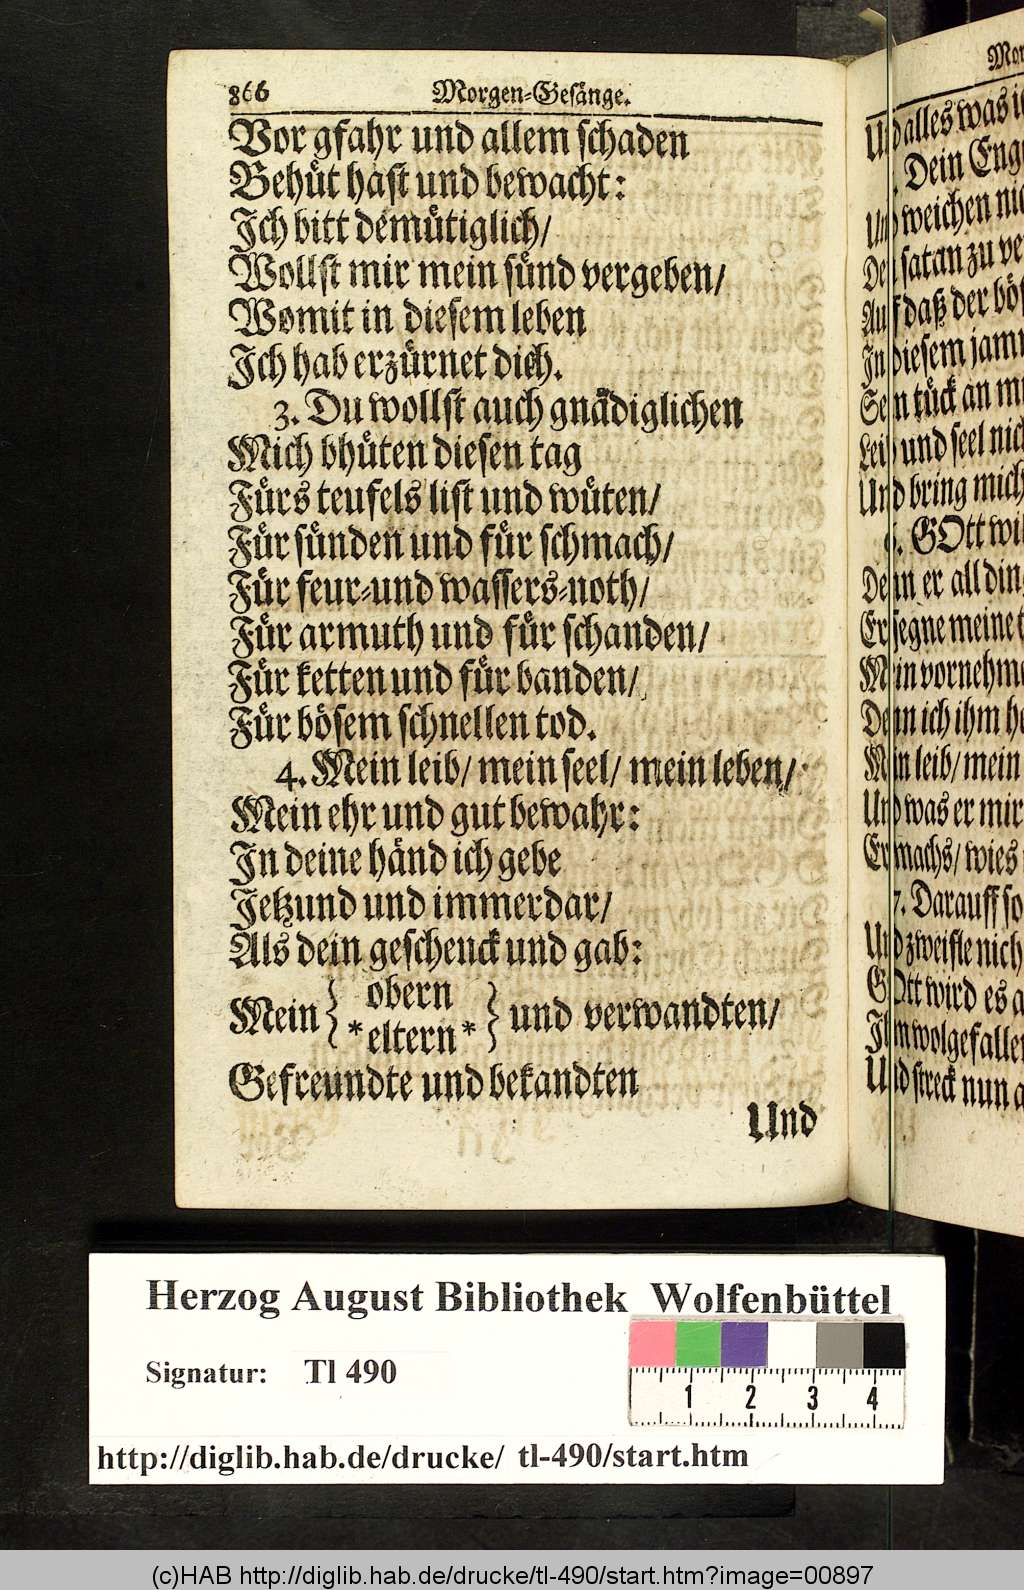 866 Morgen-Gesänge.
Vor gfahr und allem schaden
Behüt hast und bewacht:
Ich bitt demütiglich/
Wollst mir mein sünd vergeben/
Womit in diesem leben
Ich hab erzürnet dich.
3. Du wollst auch gnädiglichen
Mich bhüten diesen tag
Fürs teufels list und wüten/
Für sünden und für schmach/
Für feur-und wassers-noth/
Für armuth und für schanden/
Für ketten und für banden/
Für bösem schnellen tod.
4. Mein leib/ mein seel/ mein leben/
Mein ehr und gut bewahr:
In deine händ ich gebe
Jetzund und immerdar/
Als dein geschenck und gab:
Mein { obern
*eltern* } und verwandten/
Gefreundte und bekandten
Und
alles was
Dein
weichen
satan zu
daß der
diesem
tück an
und seel
bring mich
GOtt
er all
segne meine
vornehm
ich ihm
leib/ mein
was er mir
machs/ wies
7. Darauff
zweifle
wird es
wolgefallen
streck nun
Herzog August Bibliothek Wolfenbüttel
Signatur: Tl 490
1 2 3 4
http://diglib.hab.de/drucke/ tl-490/start.htm
(c)HAB http://diglib.hab.de/drucke/tl-490/start.htm?image=00897